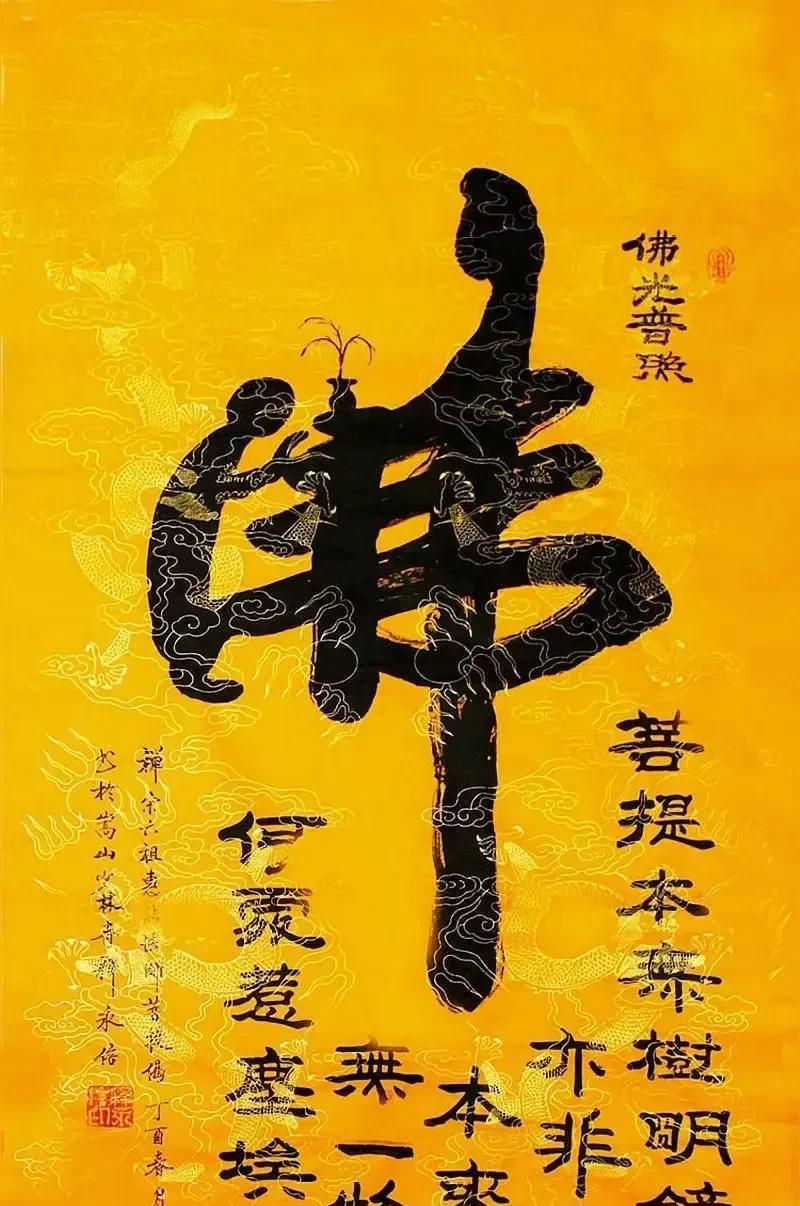 佛光普照
佛
菩提本無樹明鏡
亦非
本來
無一物
何處惹塵埃
禪宗六祖惠能禪師菩提偈 丁酉春月
書於嵩山少林寺釋永信